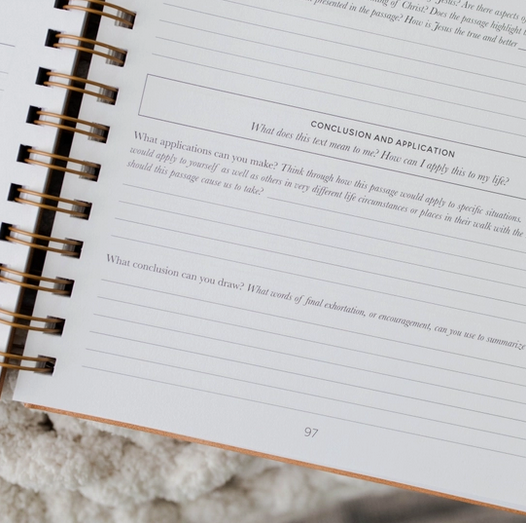 Jesus? Are there aspects
of Christ? Does the passage highlight
presented in the passage? How is Jesus the true and better
CONCLUSION AND APPLICATION
What does this text mean to me? How can I apply this to my life?
What applications can you make? Think through how this passage would apply to specific situations.
would apply to yourself as well as others in very different life circumstances or places in their walk with the
should this passage cause us to take?
What conclusion can you draw? What words of final exhortation, or encouragement, can you use to summarize
97